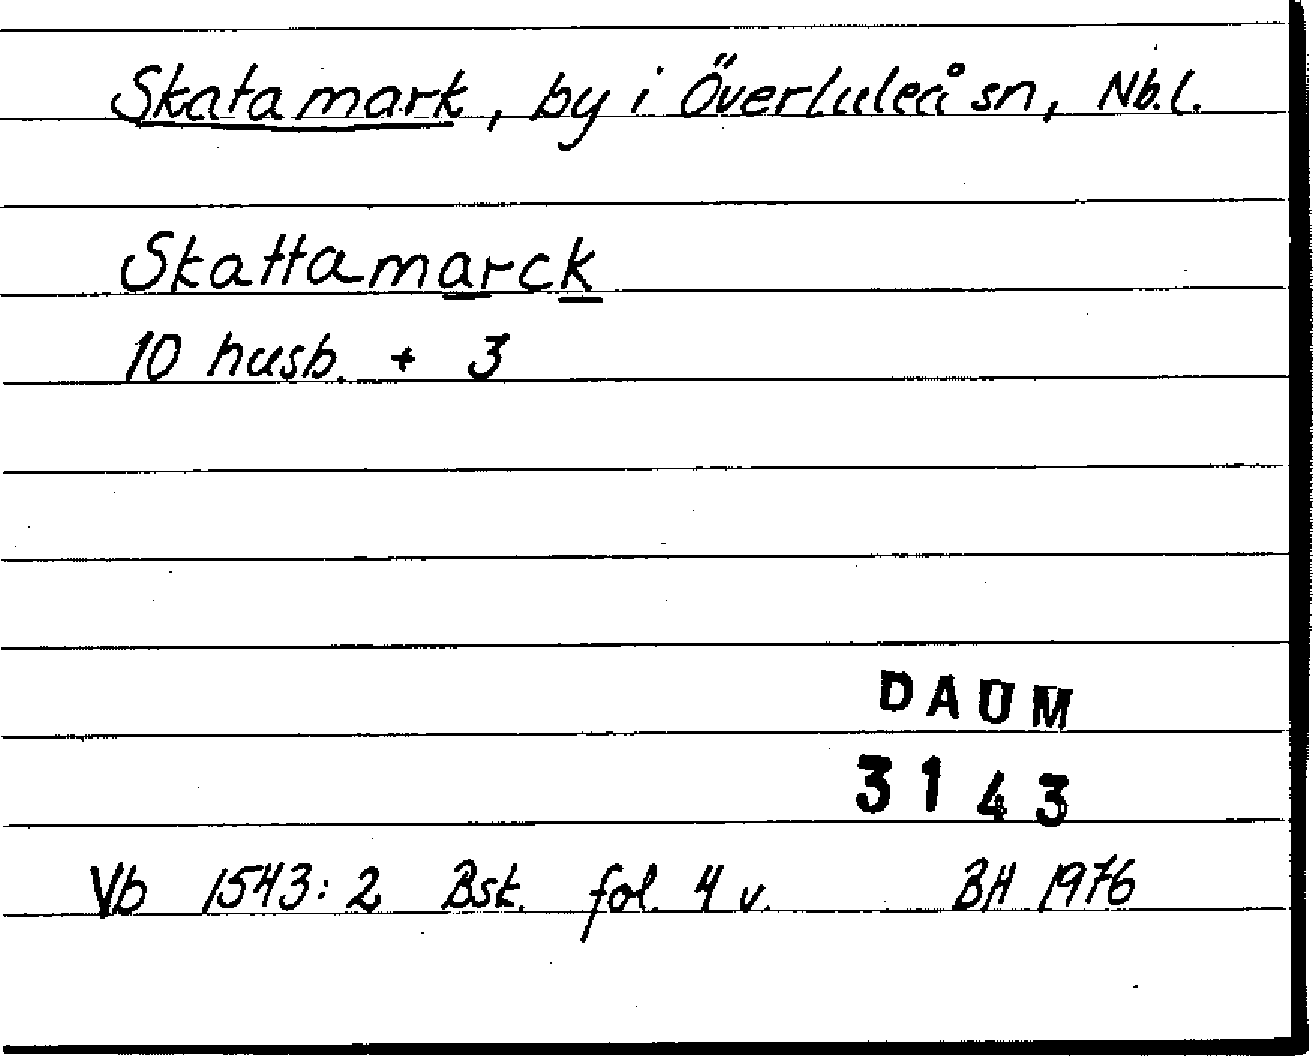 Skatamark, by i Överluleå sn, Nb.l.
Skattamarck
10 husb. + 3
DAUM
3143
Vb 1543:2 Bst. fol. 4 v. BH 1976